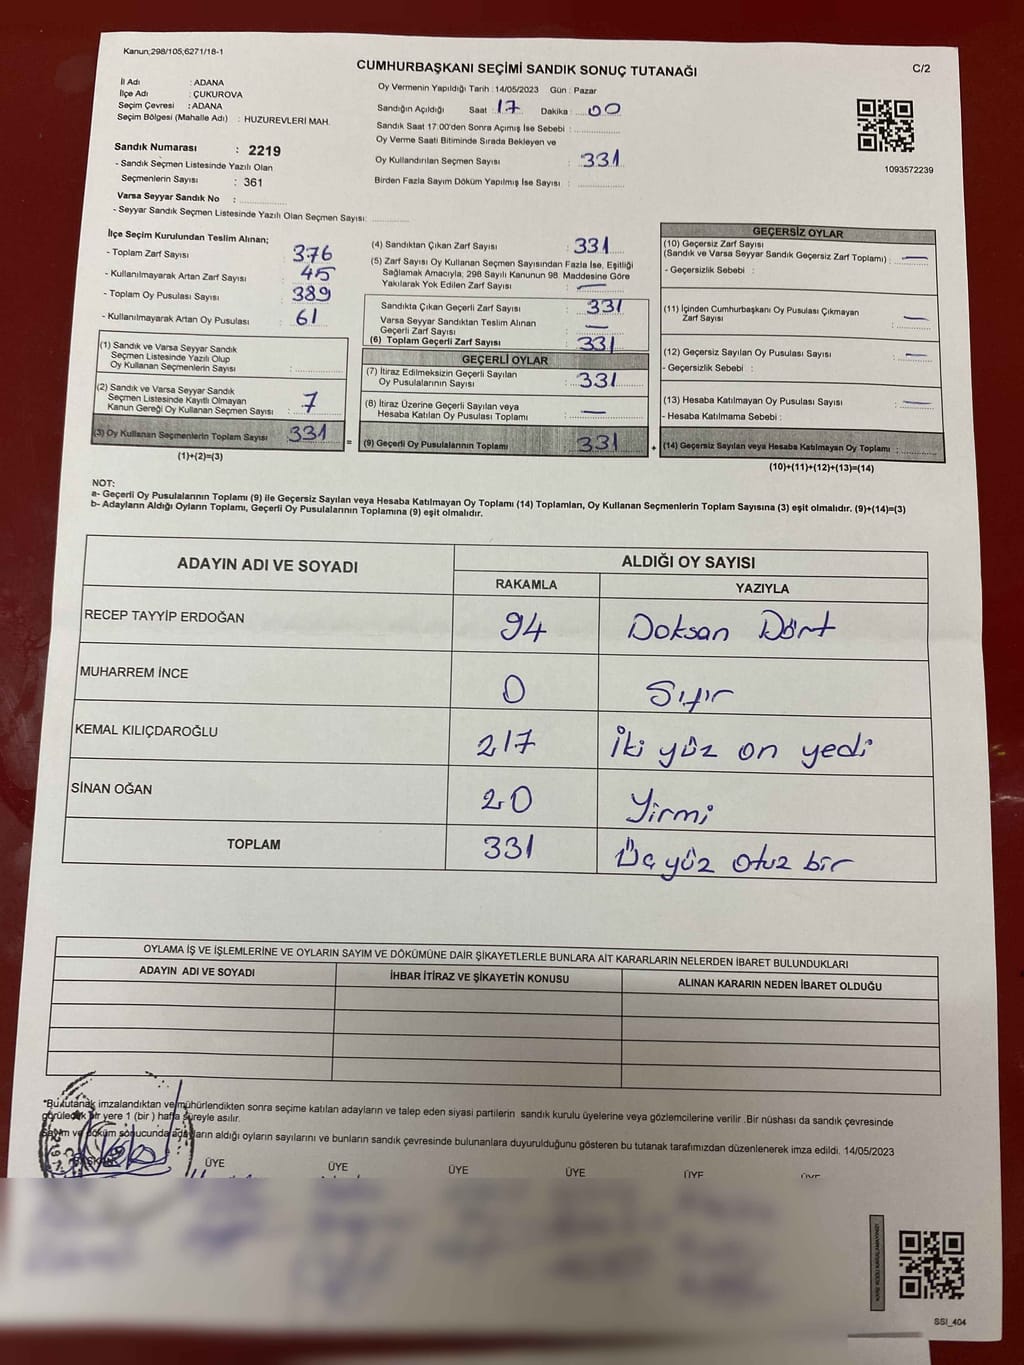 Kanun;298/105,6271/18-1
CUMHURBAŞKANI SEÇİMİ SANDIK SONUÇ TUTANAĞI
C/2
İl Adı : ADANA
İlçe Adı : ÇUKUROVA
Seçim Çevresi : ADANA
Seçim Bölgesi (Mahalle Adı) : HUZUREVLERİ MAH.
Sandık Numarası : 2219
- Sandık Seçmen Listesinde Yazılı Olan
Seçmenlerin Sayısı : 361
Varsa Seyyar Sandık No :
- Seyyar Sandık Seçmen Listesinde Yazılı Olan Seçmen Sayısı:
Oy Vermenin Yapıldığı Tarih : 14/05/2023 Gün : Pazar
Sandığın Açıldığı Saat : 17 Dakika : 00
Sandık Saat 17:00'den Sonra Açımış İse Sebebi :
Oy Verme Saati Bitiminde Sırada Bekleyen ve
Oy Kullandırılan Seçmen Sayısı : 331
Birden Fazla Sayım Döküm Yapılmış İse Sayısı :
1093572239
İlçe Seçim Kurulundan Teslim Alınan;
- Toplam Zarf Sayısı : 376
- Kullanılmayarak Artan Zarf Sayısı : 45
- Toplam Oy Pusulası Sayısı : 389
- Kullanılmayarak Artan Oy Pusulası : 61
(1) Sandık ve Varsa Seyyar Sandık
Seçmen Listesinde Yazılı Olup
Oy Kullanan Seçmenlerin Sayısı :
(2) Sandık ve Varsa Seyyar Sandık
Seçmen Listesinde Kayıtlı Olmayan
Kanun Gereği Oy Kullanan Seçmen Sayısı : 7
(3) Oy Kullanan Seçmenlerin Toplam Sayısı 331
(1)+(2)=(3)
(4) Sandıktan Çıkan Zarf Sayısı : 331
(5) Zarf Sayısı Oy Kullanan Seçmen Sayısından Fazla İse, Eşitliği
Sağlamak Amacıyla; 298 Sayılı Kanunun 98. Maddesine Göre
Yakılarak Yok Edilen Zarf Sayısı : —
Sandıkta Çıkan Geçerli Zarf Sayısı : 331
Varsa Seyyar Sandıktan Teslim Alınan
Geçerli Zarf Sayısı : —
(6) Toplam Geçerli Zarf Sayısı : 331
GEÇERLİ OYLAR
(7) İtiraz Edilmeksizin Geçerli Sayılan
Oy Pusulalarının Sayısı : 331
(8) İtiraz Üzerine Geçerli Sayılan veya
Hesaba Katılan Oy Pusulası Toplamı : —
= (9) Geçerli Oy Pusulalarının Toplamı : 331 +
GEÇERSİZ OYLAR
(10) Geçersiz Zarf Sayısı
(Sandık ve Varsa Seyyar Sandık Geçersiz Zarf Toplamı) : —
- Geçersizlik Sebebi :
(11) İçinden Cumhurbaşkanı Oy Pusulası Çıkmayan
Zarf Sayısı : —
(12) Geçersiz Sayılan Oy Pusulası Sayısı : —
- Geçersizlik Sebebi :
(13) Hesaba Katılmayan Oy Pusulası Sayısı : —
- Hesaba Katılmama Sebebi :
(14) Geçersiz Sayılan veya Hesaba Katılmayan Oy Toplamı :
(10)+(11)+(12)+(13)=(14)
NOT:
a- Geçerli Oy Pusulalarının Toplamı (9) ile Geçersiz Sayılan veya Hesaba Katılmayan Oy Toplamı (14) Toplamları, Oy Kullanan Seçmenlerin Toplam Sayısına (3) eşit olmalıdır. (9)+(14)=(3)
b- Adayların Aldığı Oyların Toplamı, Geçerli Oy Pusulalarının Toplamına (9) eşit olmalıdır.
ADAYIN ADI VE SOYADI
ALDIĞI OY SAYISI
RAKAMLA YAZIYLA
RECEP TAYYİP ERDOĞAN 94 Doksan Dört
MUHARREM İNCE 0 Sıfır
KEMAL KILIÇDAROĞLU 217 İki yüz on yedi
SİNAN OĞAN 20 Yirmi
TOPLAM 331 Üç yüz otuz bir
OYLAMA İŞ VE İŞLEMLERİNE VE OYLARIN SAYIM VE DÖKÜMÜNE DAİR ŞİKAYETLERLE BUNLARA AİT KARARLARIN NELERDEN İBARET BULUNDUKLARI
ADAYIN ADI VE SOYADI İHBAR İTİRAZ VE ŞİKAYETİN KONUSU ALINAN KARARIN NEDEN İBARET OLDUĞU
*Bu tutanak imzalandıktan ve mühürlendikten sonra seçime katılan adayların ve talep eden siyasi partilerin sandık kurulu üyelerine veya gözlemcilerine verilir .Bir nüshası da sandık çevresinde
görülecek bir yere 1 (bir ) hafta süreyle asılır.
Sayım ve döküm sonucunda adayların aldığı oyların sayılarını ve bunların sandık çevresinde bulunanlara duyurulduğunu gösteren bu tutanak tarafımızdan düzenlenerek imza edildi. 14/05/2023
BAŞKAN ÜYE ÜYE ÜYE ÜYE ÜYE ÜYE
SSI_404